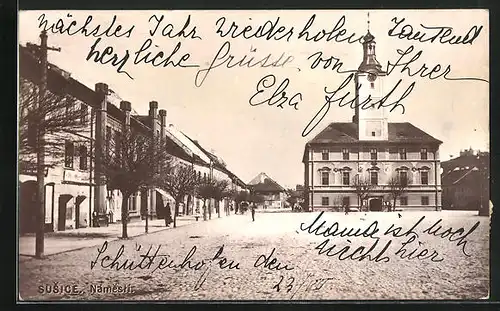 nächstes Jahr wiederholen Tausend
herzliche Grüsse von Ihrer
Elza Fürth
Mama ist noch
nicht hier
Schüttenhofen den
SUŠICE. Náměstí.